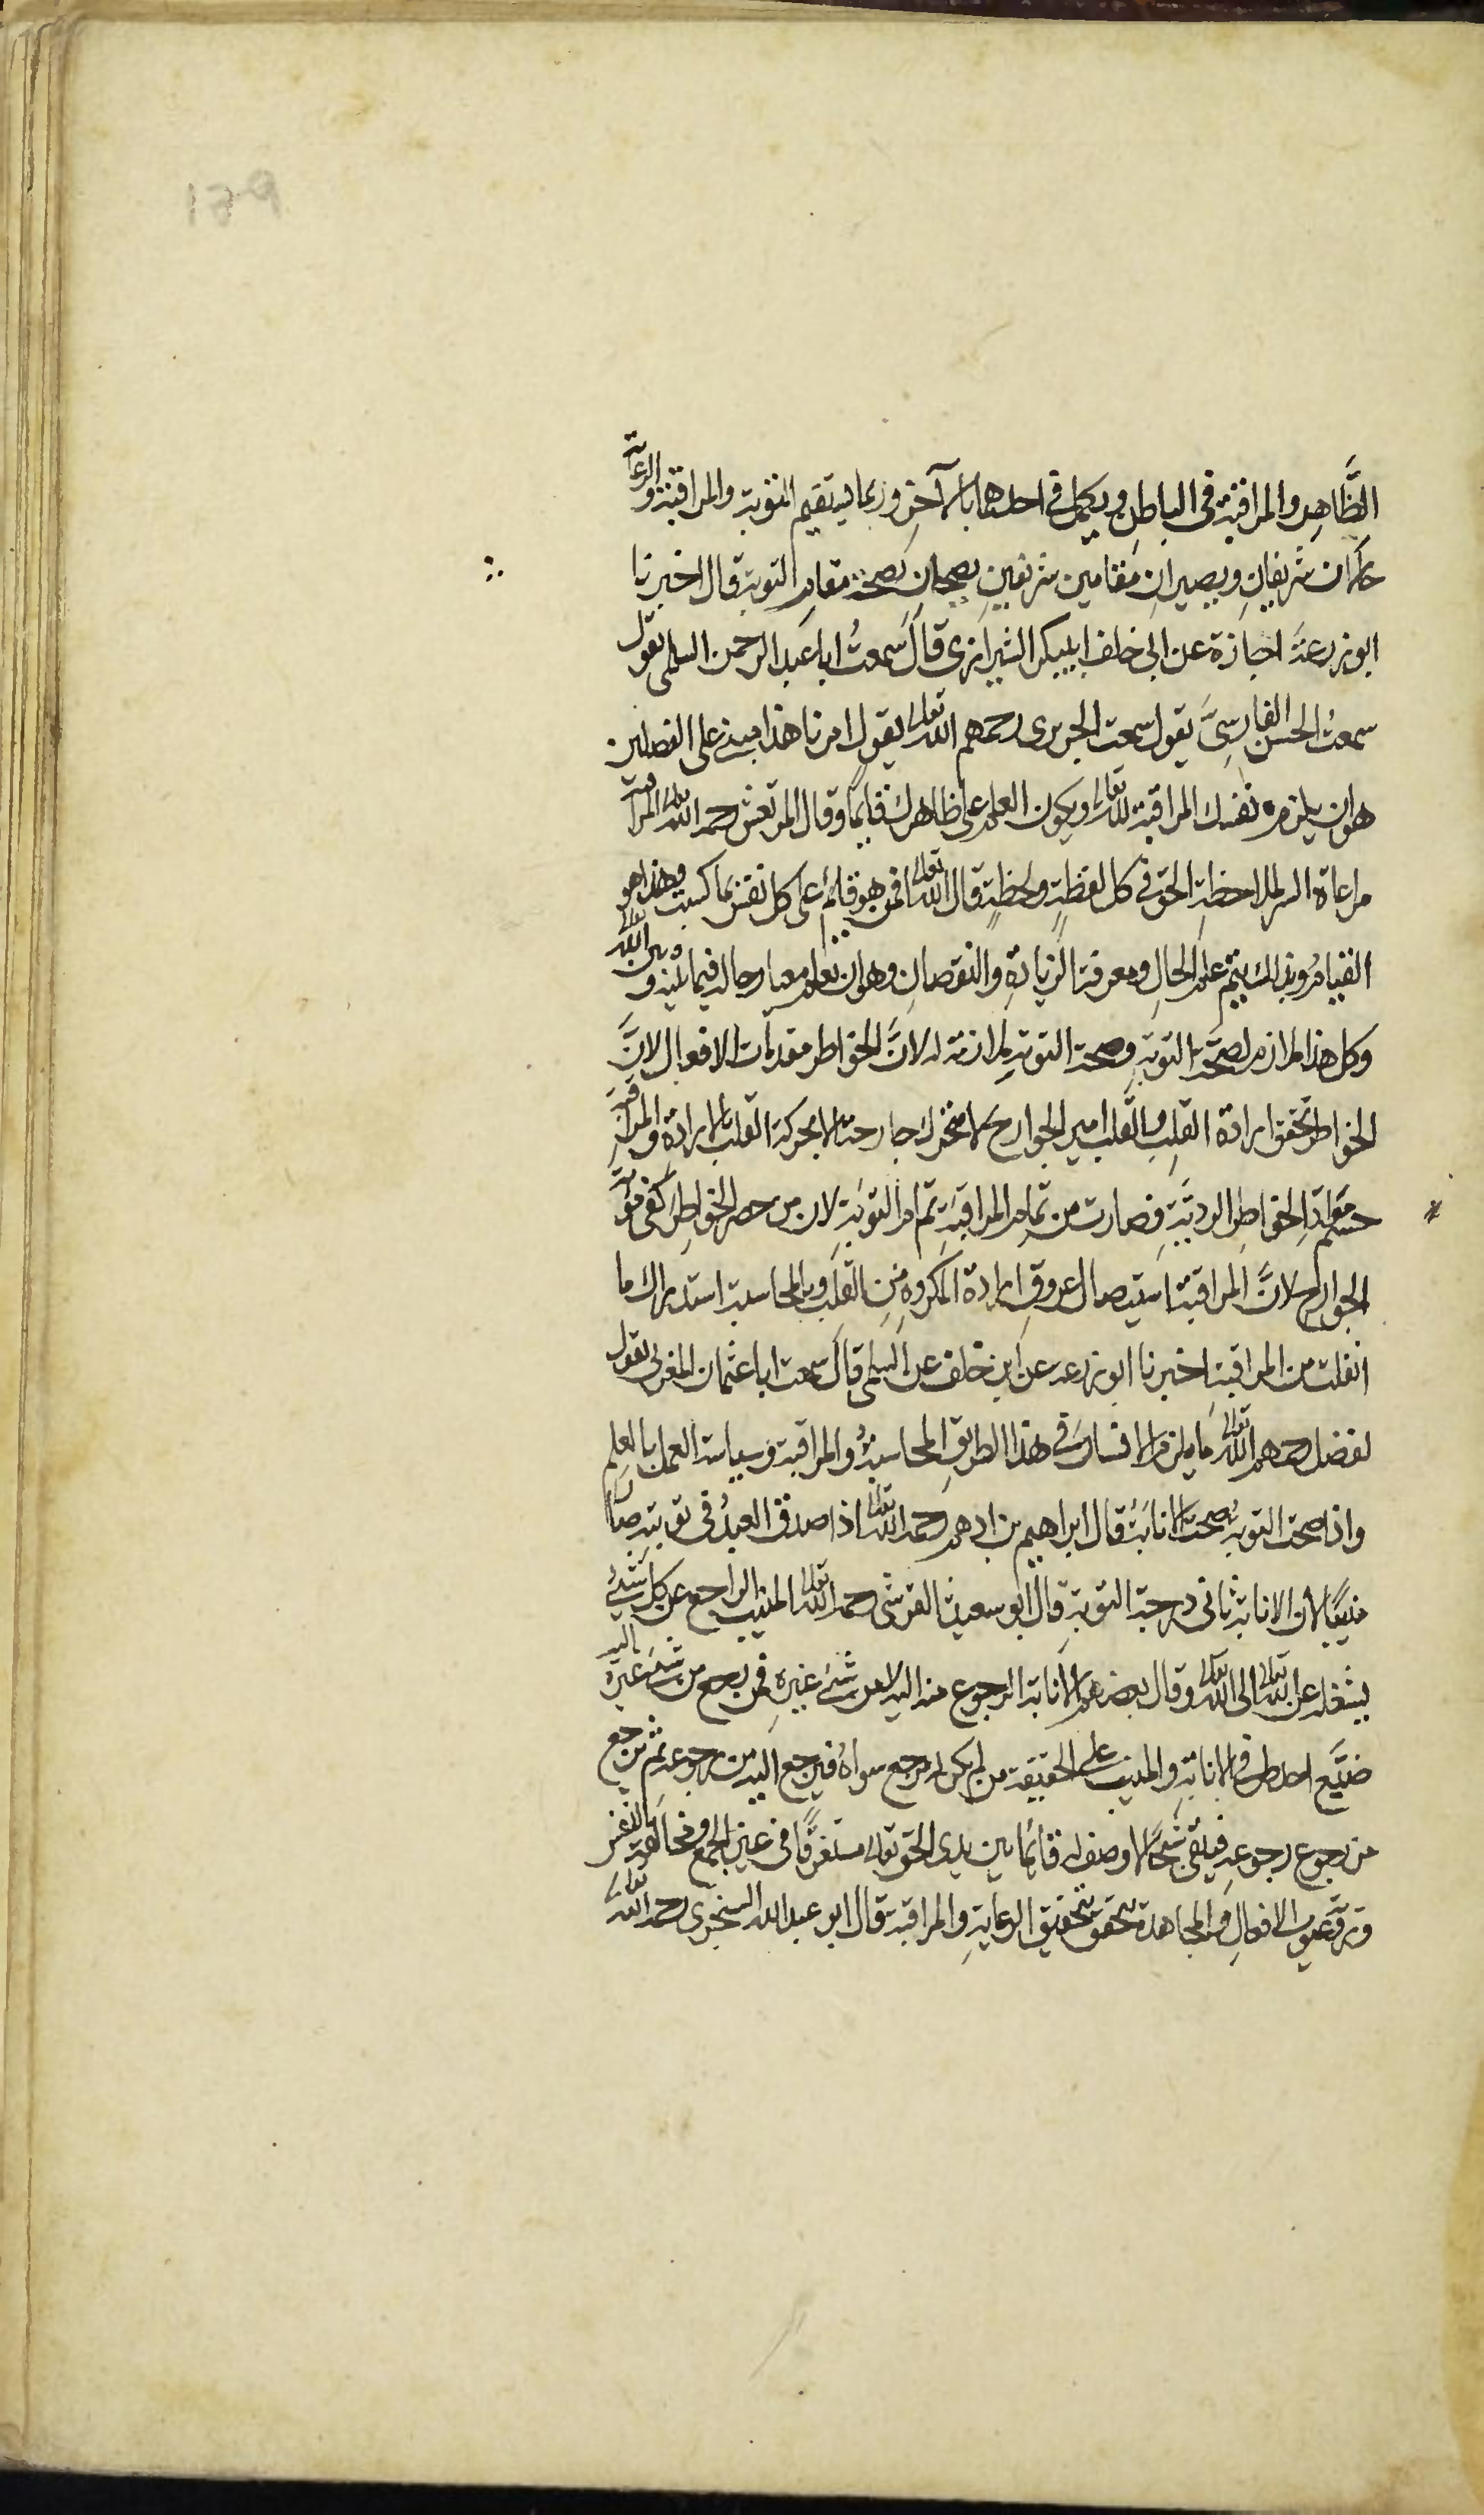 الظَّاهِرِ والمراقبة فى الباطن ويكمل فى احدهما بالآخر وبهما يستقيم التوبة والمراقبة والرعاية
حالان شريفانِ ويصيران مقامين شريفين يصحان بصحة مقام التوبة قال اخبرنا
ابو زرعة اجازة عن ابى خلف ابى بكر الشيرازى قال سمعتُ ابا عبد الرحمن السلمى يقول
سمعتُ الحسن الفارسىَّ يقول سمعت الجريرى رحمهم الله تعالى يقول امرنا هذا مبنى على الفصلين
هو ان يلزم نفسك المراقبة لله تعالى ويكون العلم على ظاهرك قايمًا وقال المرتعش رحمه الله تعالى المراقبة
مراعاة السر لملاحظة الحق فى كل لفظةٍ ولحظةٍ قال الله تعالى افمن هو قائم على كل نفس بما كسبت وهذا هو
القيام وبذلك يتم علم الحالِ ومعرفة الزيادةِ والنقصانِ وهو ان تعلم معيار حاله فيما بينه وبين الله تعالى
وكل هذا ملازم لصحة التوبةِ وصحة التوبة ملازمة له لانَّ الخواطر مقدمات الافعال لانَّ
الخواطر تحقق ارادة القلبِ والقلب امير الجوارح لا تتحرك جارحة الا بحركة القلب بالارادة والمراقبة
حسم مواد الخواطر الرديَّةِ فصارت من تمام المراقبة تمام التوبة لان من حصر الخواطر كفى مؤنة
الجوارح لانَّ المراقبة استيصال عروقِ ارادة المكروه من القلب وبالمحاسبة استدراك ما
انفلت من المراقبة اخبرنا ابو زرعة عن ابن خلف عن السلمى قال سمعت ابا عثمان المغربى يقول
افضل رحمهم الله تعالى ما يلزم الانسان فى هذا الطريق المحاسبةُ والمراقبة وسياسة العمل بالعلم
واذا صحت التوبةُ صحت الانابة قال ابراهيم بن ادهم رحمه الله تعالى اذا صدق العبدُ فى توبته صار
منيبًا لان الانابة ثانى درجة التوبة قال ابو سعيد القرشى رحمه الله تعالى المنيب الراجع عن كل شئ
يشغله عن الله تعالى الى الله تعالى وقال بعضهم الانابة الرجوع منه اليه لا من شئ غيره فمن رجع من غيره اليه
ضيَّع احد طرفى الانابة والمنيب على الحقيقة من لم يكن له مرجع سواه فيرجع اليه من رجوعه ثم يرجع
من رجوع رجوعه فيبقى شبحًا لا وصف له قائمًا بين يدى الحق تعالى مستغرقًا فى عين الجمع ومخالفة النفس
ورؤية عيوب الافعالِ والمجاهدة تتحقق بتحقيق الرعاية والمراقبة قال ابو عبد الله السنجرى رحمه الله تعالى